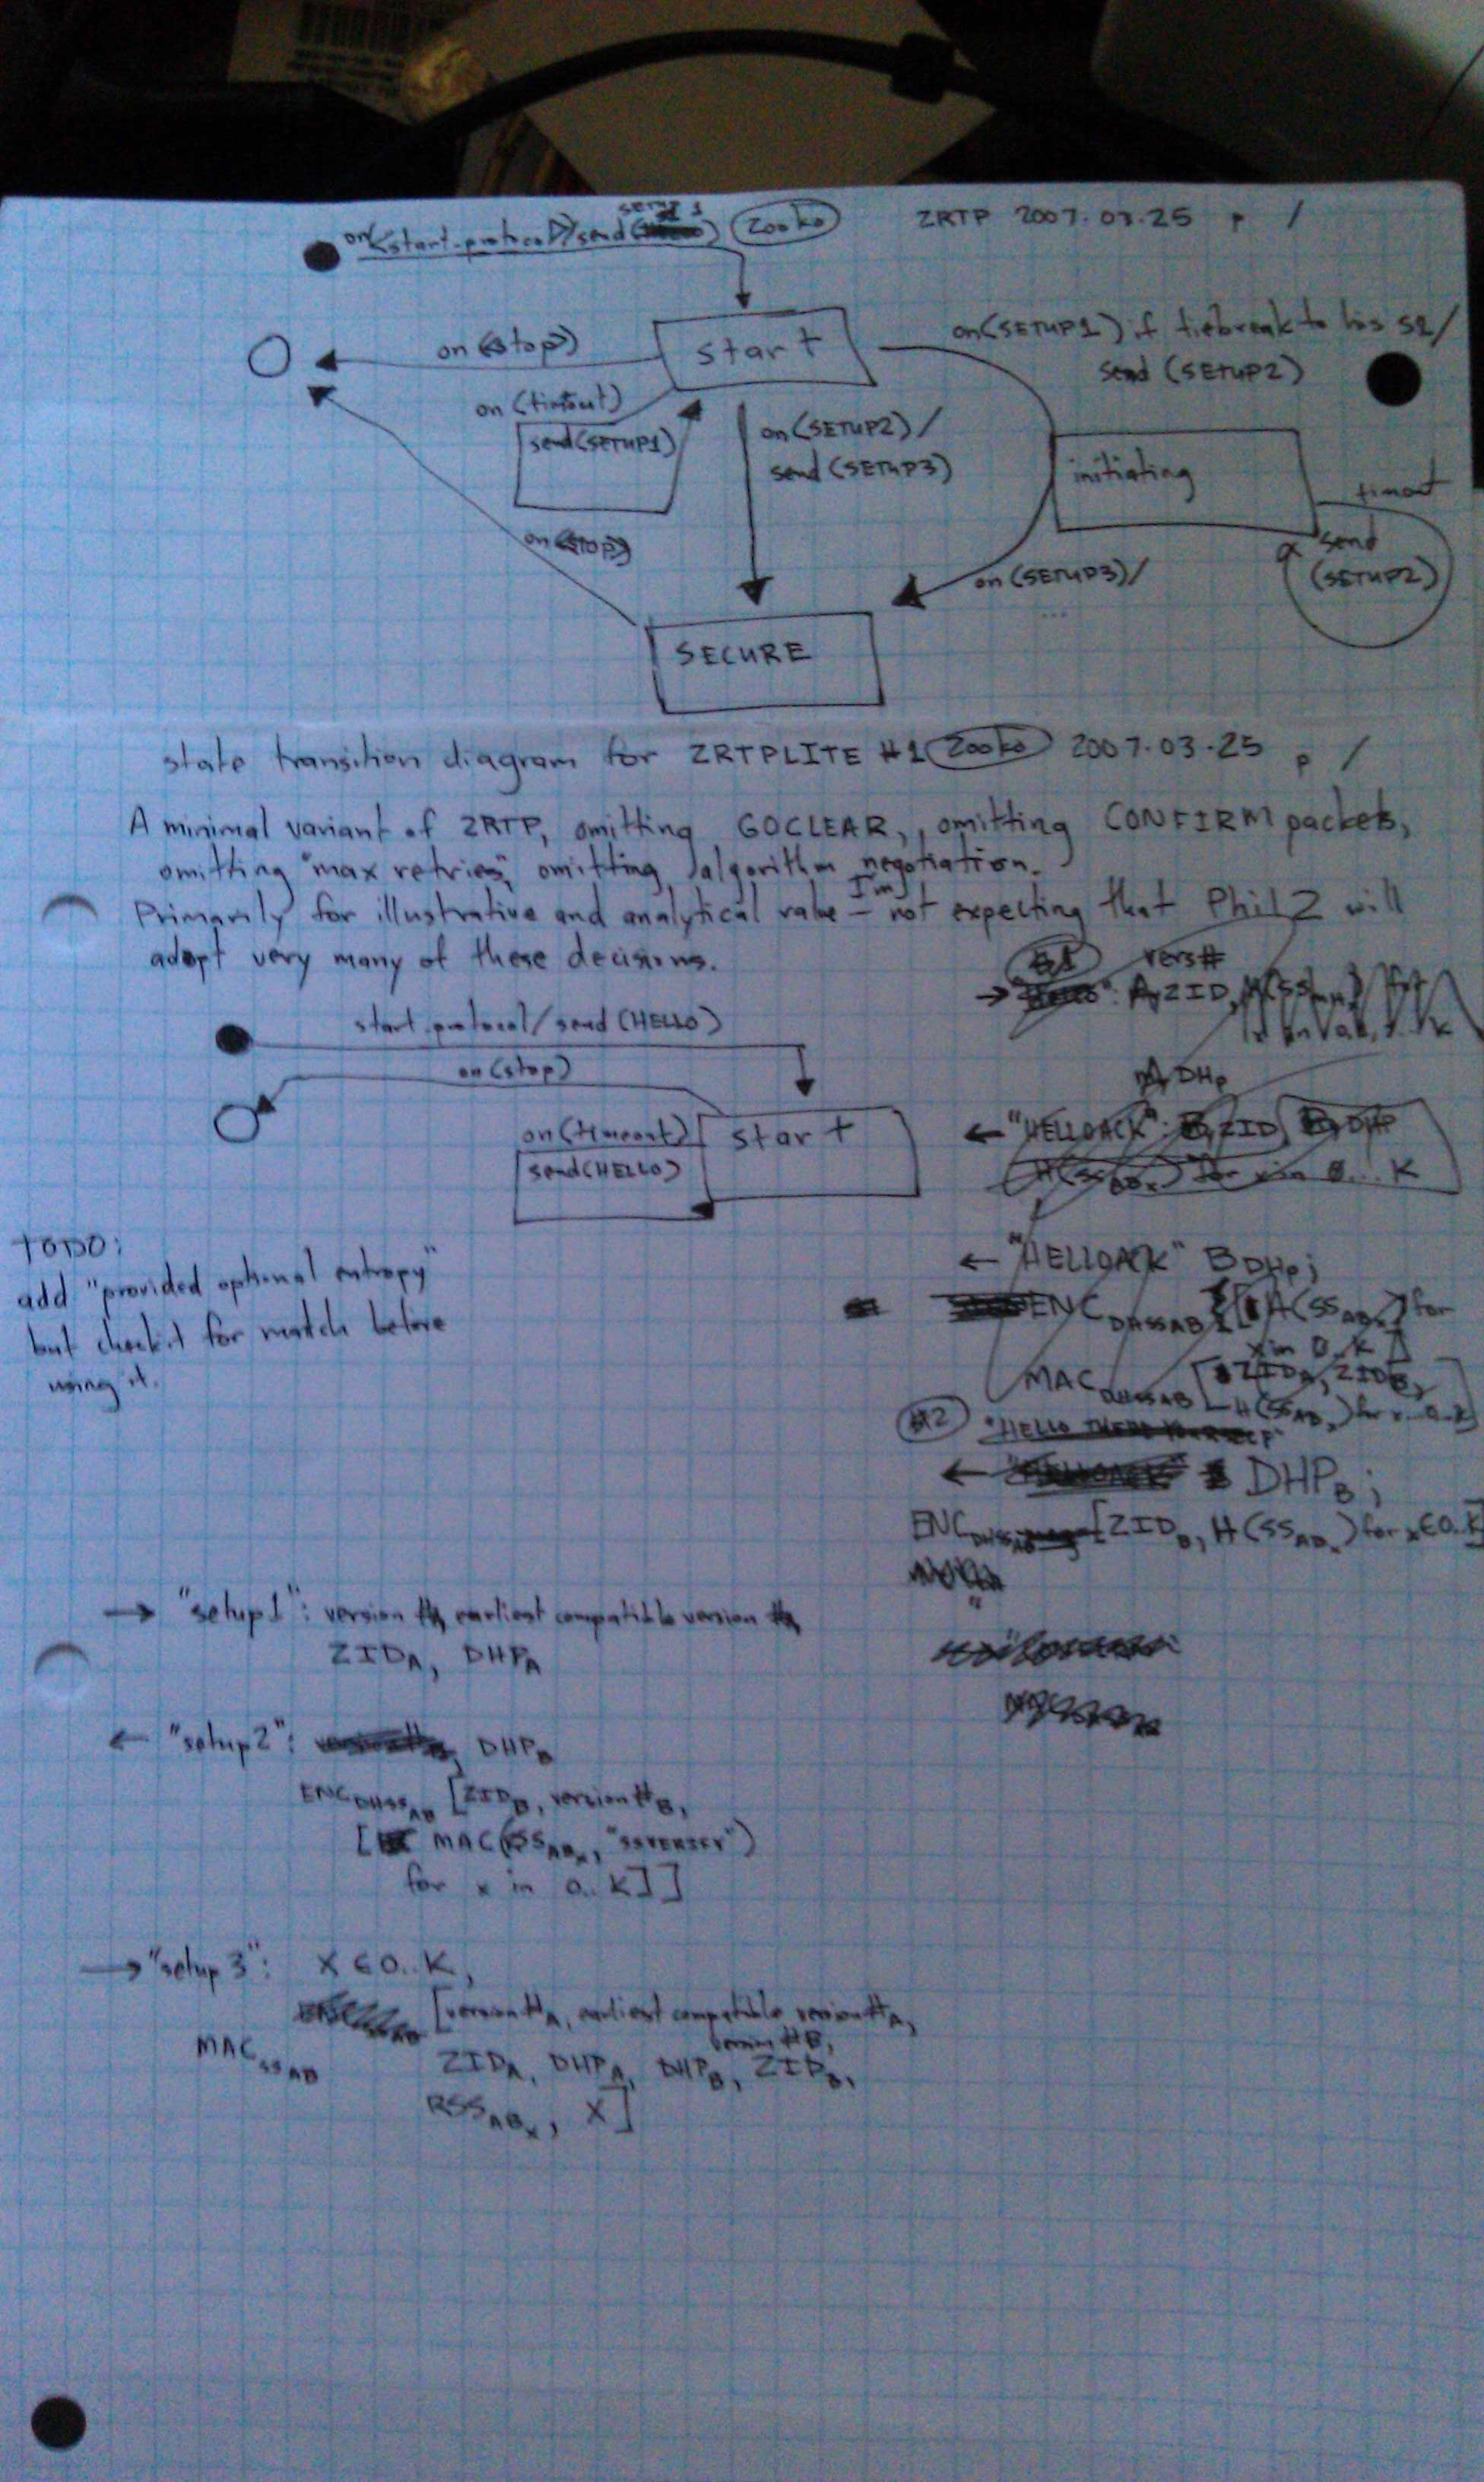 setup 1
on <start.protocol>/send( ) Zooko ZRTP 2007.03.25 p 1
on(<stop>)
start
on(SETUP1) if tiebreak to his S2/
send (SETUP2)
on (timeout)
send(SETUP1)
on(SETUP2)/
send (SETUP3)
initiating
timeout
send
(SETUP2)
on(<stop>)
on(SETUP3)/
...
SECURE
state transition diagram for ZRTPLITE #1 Zooko 2007.03.25 p 1
A minimal variant of ZRTP, omitting GOCLEAR, omitting CONFIRM packets,
omitting "max retries", omitting algorithm negotiation.
Primarily for illustrative and analytical value – I'm not expecting that Phil Z will
adopt very many of these decisions.
#1 vers#
→ "Hello": A, ZID,
start.protocol/send(HELLO)
on(stop)
on(timeout)
send(HELLO)
start
DHP
← "HELLOACK": B, ZID B, DHP
H(SS ABx) for x in 0...K
TODO:
add "provided optional entropy"
but check it for match before
using it.
← "HELLOACK" B DHP;
ENC DHSSAB [H(SS ABx) for
x in 0..K]
MAC DHSSAB [ZID A, ZID B,
H(SS ABx) for x 0..K]
#2 "HELLO THERE YOURSELF"
← "HELLOACK" DHP B;
ENC DHSSAB [ZID B, H(SS ABx) for x∈0..K
→ "setup1": version #A, earliest compatible version #A,
ZID A, DHP A
← "setup2": DHP B
ENC DHSS AB [ZID B, version # B,
[MAC(SS ABx, " ")
for x in 0..K]]
→ "setup 3": X ∈ 0..K,
[version # A, earliest compatible version # A,
version # B,
MAC SS AB
ZID A, DHP A, DHP B, ZID B,
RSS ABx, X]